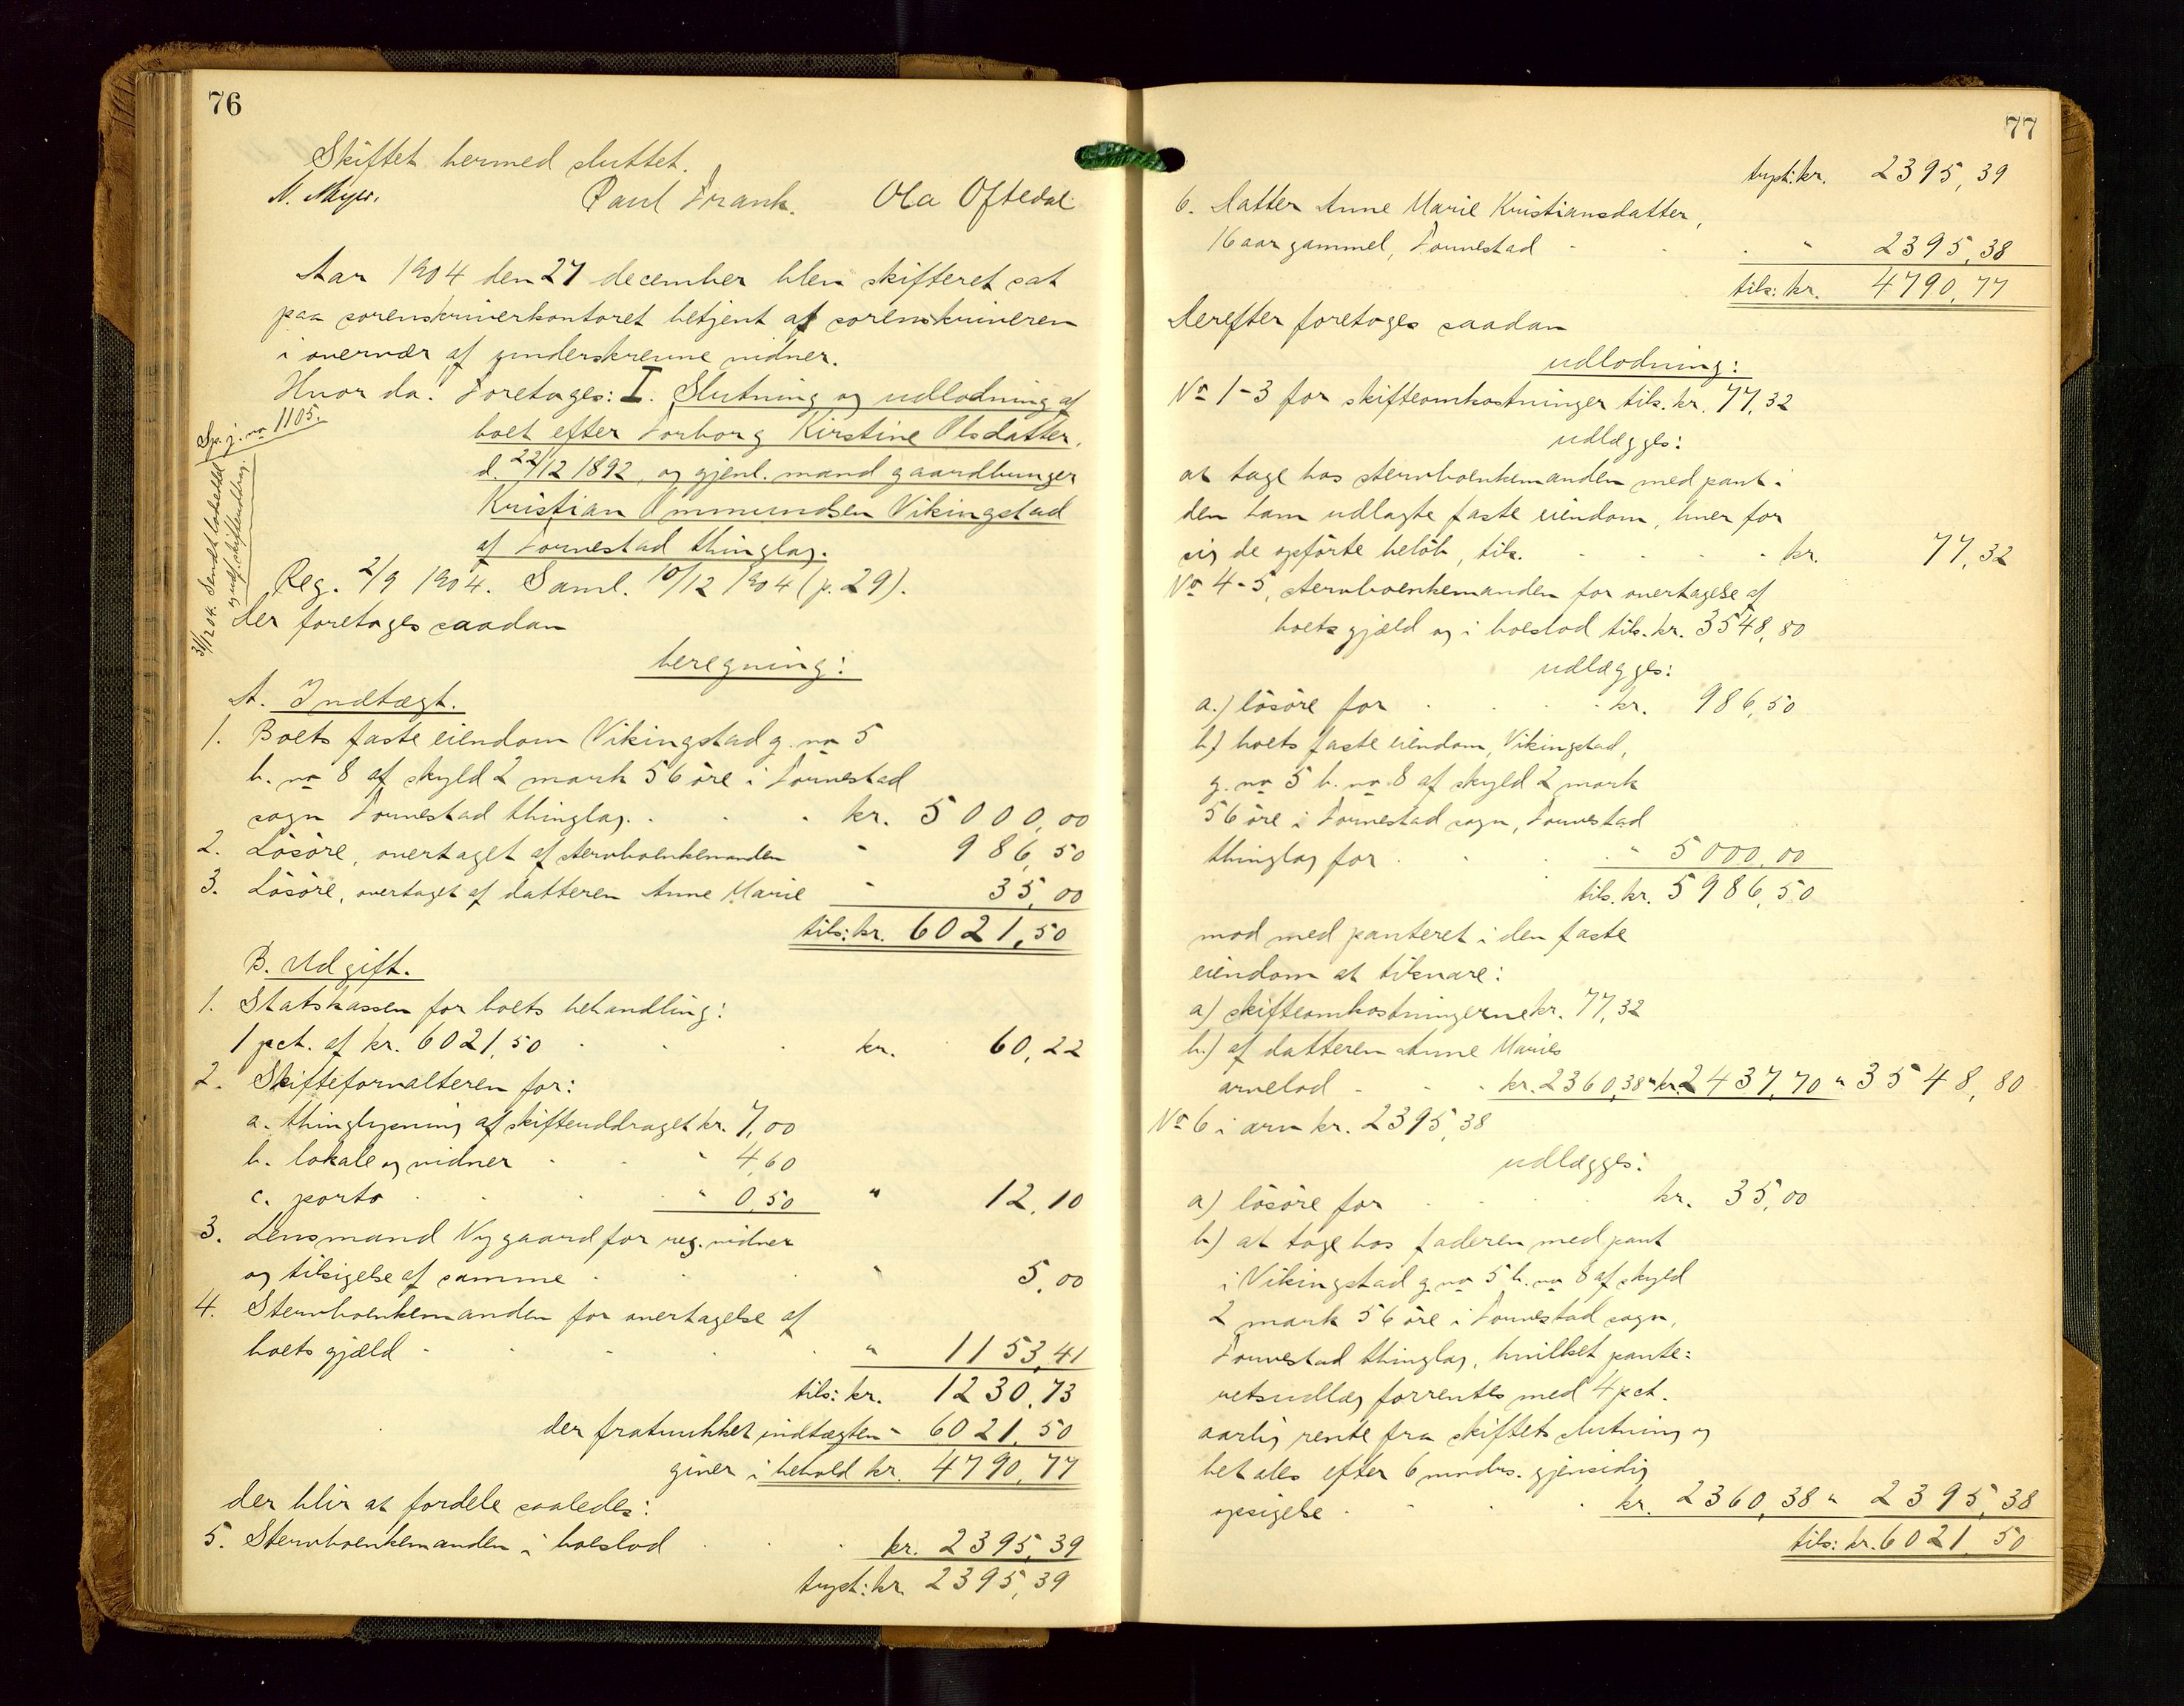 76
Skiftet hermed sluttet.
Paul Frank. Ola Oftedal
Aar 1904 den 27 december blev skifteret sat
paa sorenskriverkontoret betjent af sorenskriveren
i overvær af underskrevne vidner.
Hvor da: Foretages: I. Slutning og udlodning af
boet efter Torborg Kirstine Olsdatter,
d. 22/12 1892, og gjenl. mand gaardbruger
Kristian Ommundsen Vikingstad
af Torvestad thinglag.
Sp. j. no 1105.
31/12 04. Sendt lodseddel
og udf. skifteuddrag.
Reg. 2/9 1904. Saml. 10/12 1904 (p. 29).
Der foretages saadan
beregning:
A. Indtægt.
1. Boets faste eiendom Vikingstad g. no 5
b. no 8 af skyld 2 mark 56 øre i Torvestad
sogn Torvestad thinglag. . . kr. 5000,00
2. Løsøre, overtaget af stervboenkemanden " 986,50
3. Løsøre, overtaget af datteren Anne Marie " 35,00
tils: kr. 6021,50
B. Udgift.
1. Statskassen for boets behandling:
1 pct. af kr. 6021,50 . . . kr. 60,22
2. Skifteforvalteren for:
a. thinglysning af skifteuddraget kr. 7,00
b. lokale og vidner . . " 4,60
c. porto . . . " 0,50 " 12,10
3. Lensmand Nygaard for reg. vidner
og tilsigelse af samme . . " 5,00
4. Stervboenkemanden for overtagelse af
boets gjæld . . . . " 1153,41
tils: kr. 1230,73
der fratrukket indtægten " 6021,50
giver i behold kr. 4790,77
der blir at fordele saaledes:
5. Stervboenkemanden i boeslod . . kr. 2395,39
trpt: kr. 2395,39
77
trpt: kr. 2395,39
6. Datter Anne Marie Kristiansdatter,
16 aar gammel, Torvestad . . . " 2395,38
tils: kr. 4790,77
Derefter foretages saadan
udlodning:
No 1-3 for skifteomkostninger tils. kr. 77,32
udlægges:
at tage hos stervboenkemanden med pant i
den ham udlagte faste eiendom, hver for
sig de opførte beløb, tils. . . . kr. 77,32
No 4-5, stervboenkemanden for overtagelse af
boets gjæld og i boeslod tils. kr. 3548,80
udlægges:
a.) løsøre for . . . . kr. 986,50
b.) boets faste eiendom, Vikingstad,
g. no 5 b. no 8 af skyld 2 mark
56 øre i Torvestad sogn, Torvestad
thinglag for . . . " 5000,00
tils. kr. 5986,50
mod med panteret i den faste
eiendom at tilsvare:
a) skifteomkostningerne kr. 77,32
b.) af datteren Anne Maries
arvelod . . . kr. 2360,38 " kr. 2437,70 " 3548,80
No 6 i arv kr. 2395,38
udlægges:
a) løsøre for . . . . kr. 35,00
b) at tage hos faderen med pant
i Vikingstad g. no 5 b. no 8 af skyld
2 mark 56 øre i Torvestad sogn,
Torvestad thinglag, hvilket pante=
retsudlæg forrentes med 4 pct.
aarlig rente fra skiftets slutning og
betales efter 6 mndrs. gjensidig
opsigelse . . . . kr. 2360,38 " 2395,38
tils: kr. 6021,50